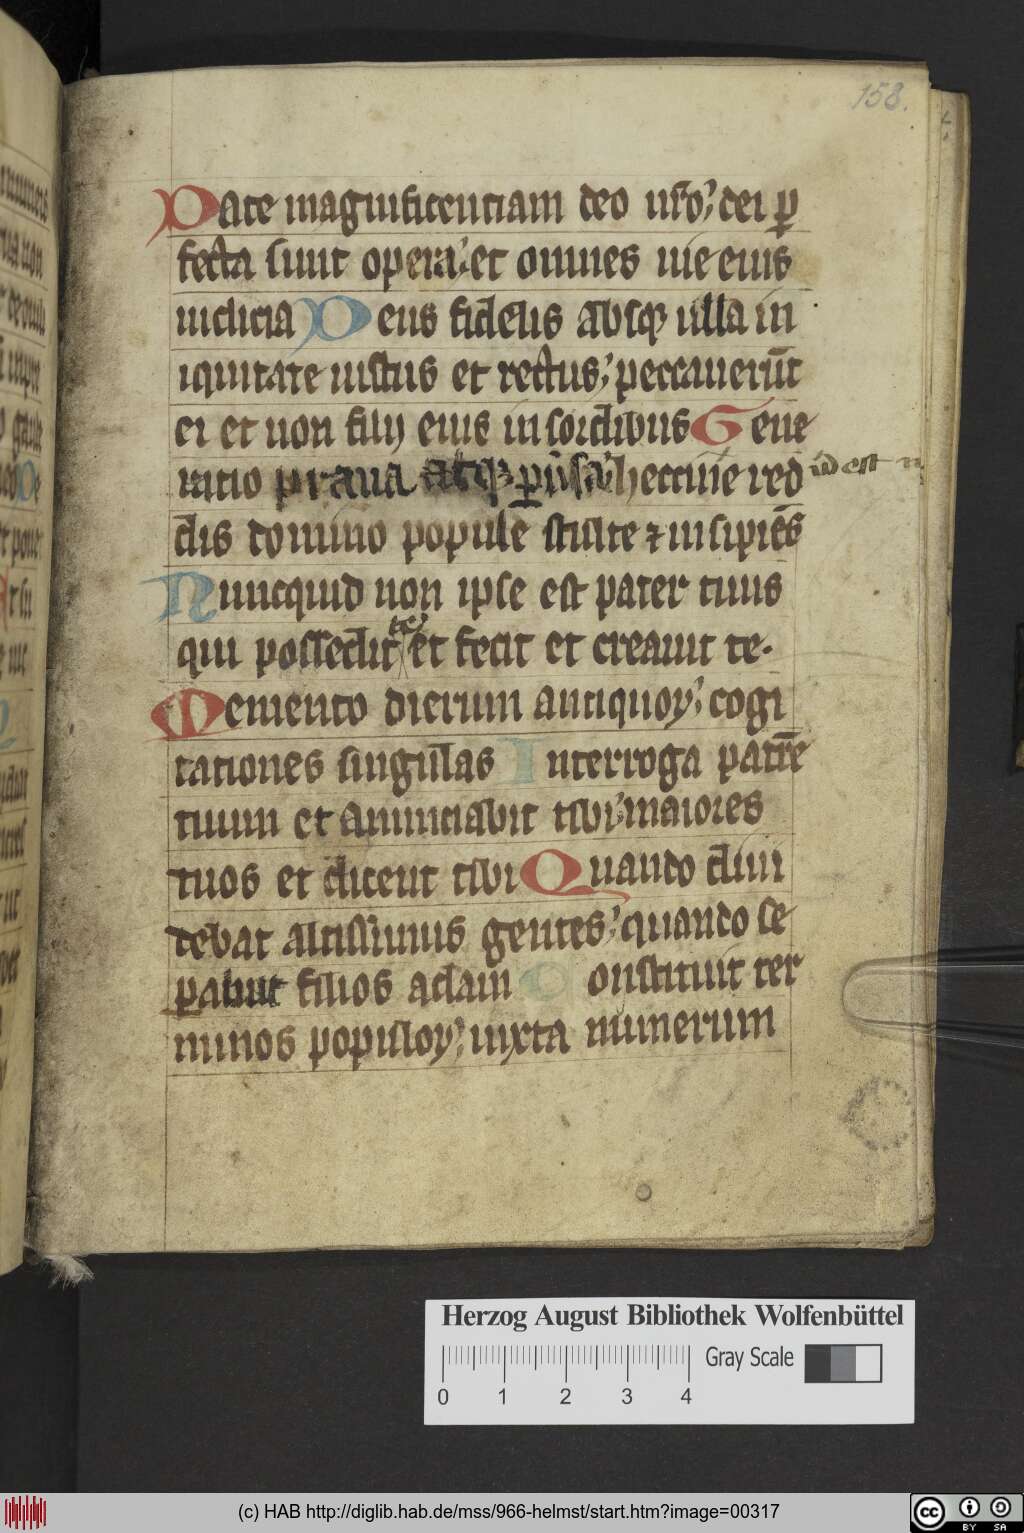 158.
Date magnificenciam deo nr̄o; dei ꝑ
fecta sunt opera; et omnes uie eius
iudicia Deus fidelis absqꝫ ulla in
iquitate iustus et rectus; peccauerūt
ei et non filij eius in sordibus Gene
ratio praua atqꝫ heccine red
dis domino popule stulte ⁊ insipiēs
Nuncquid non ipse est pater tuus
qui possedit te et fecit et creauit te.
Memento dierum antiquoꝝ; cogi
tationes singulas Interroga patrē
tuum et annunciabit tibi; maiores
tuos et dicent tibi Quando diui
debat altissimus gentes; quando se
parauit filios adam Constituit ter
minos populoꝝ; iuxta numerum
Herzog August Bibliothek Wolfenbüttel
Gray Scale
0 1 2 3 4
(c) HAB http://diglib.hab.de/mss/966-helmst/start.htm?image=00317
cc BY SA